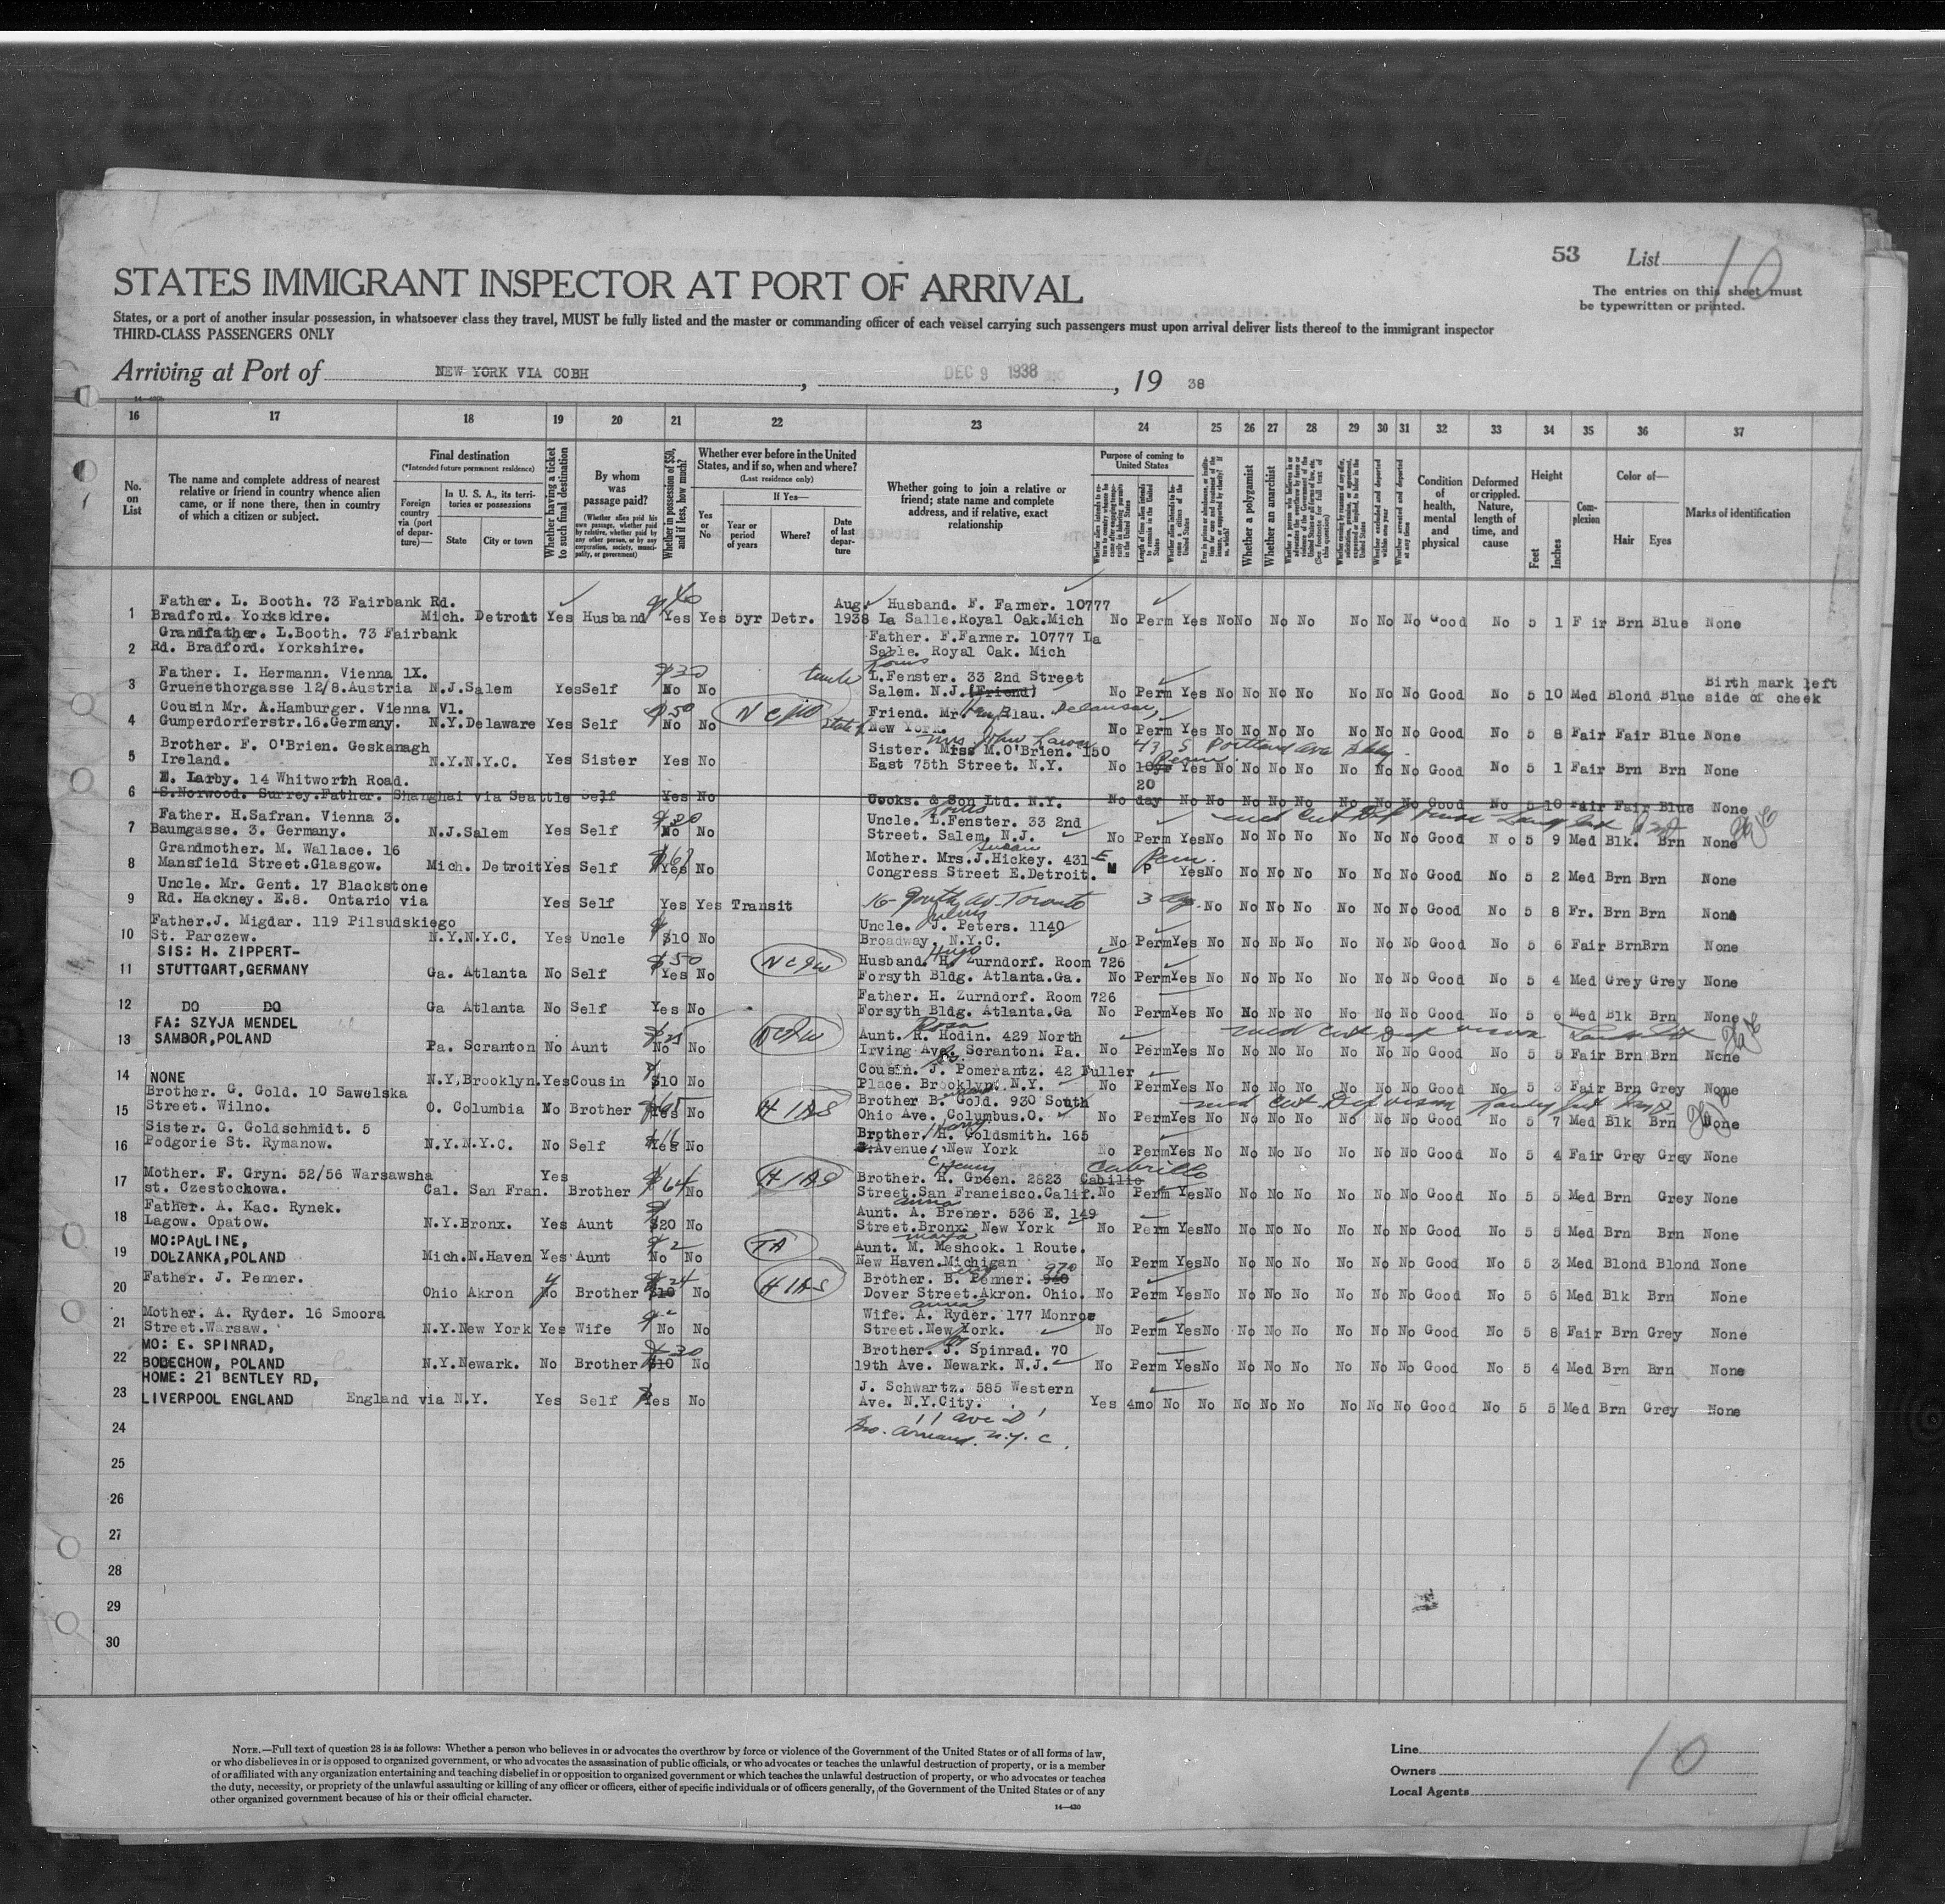 53 List 10
STATES IMMIGRANT INSPECTOR AT PORT OF ARRIVAL
The entries on this sheet must
be typewritten or printed.
States, or a port of another insular possession, in whatsoever class they travel, MUST be fully listed and the master or commanding officer of each vessel carrying such passengers must upon arrival deliver lists thereof to the immigrant inspector
THIRD-CLASS PASSENGERS ONLY
Arriving at Port of NEW YORK VIA COBH, DEC 9 1938, 19 38
16 17 18 19 20 21 22 23 24 25 26 27 28 29 30 31 32 33 34 35 36 37
No. on List
The name and complete address of nearest relative or friend in country whence alien came, or if none there, then in country of which a citizen or subject.
Final destination
(*Intended future permanent residence)
Foreign country via (port of departure)—
In U. S. A., its territories or possessions
State City or town
Whether having a ticket to such final destination
By whom was passage paid?
(Whether alien paid his own passage, whether paid by relative, whether paid by any other person, or by any corporation, society, municipality, or government)
Whether in possession of $50, and if less, how much?
Whether ever before in the United States, and if so, when and where?
(Last residence only)
Yes or No
If Yes—
Year or period of years
Where?
Date of last departure
Whether going to join a relative or friend; state name and complete address, and if relative, exact relationship
Purpose of coming to United States
Whether a polygamist
Whether an anarchist
Condition of health, mental and physical
Deformed or crippled. Nature, length of time, and cause
Height
Feet Inches
Complexion
Color of—
Hair Eyes
Marks of identification
1 Father. L. Booth. 73 Fairbank Rd. Aug. Husband. F. Farmer. 10777
Bradford. Yorkshire. Mich. Detroit Yes Husband $40 Yes Yes 5yr Detr. 1938 La Salle.Royal Oak.Mich No Perm Yes No No No No No No No Good No 5 1 Fair Brn Blue None
2 Grandfather. L.Booth. 73 Fairbank Father. F.Farmer. 10777 La
Rd. Bradford. Yorkshire. Salle. Royal Oak. Mich
3 Father. I. Hermann. Vienna 1X. $30 Uncle Louis L.Fenster. 33 2nd Street Birth mark left
Gruenethorgasse 12/8.Austria N.J.Salem Yes Self No No Salem. N.J. (Friend) No Perm Yes No No No No No No No No Good No 5 10 Med Blond Blue side of cheek
4 Cousin Mr. A.Hamburger. Vienna V1. $50 Friend. Mr. Blau. Delanson,
Gumperdorferstr.16.Germany. N.Y.Delaware Yes Self No No New York. No Perm Yes No No No No No No No No Good No 5 8 Fair Fair Blue None
5 Brother. F. O'Brien. Geskanagh Mrs John Sister. Miss M.O'Brien. 150 43 S Portland Ave Bkly.
Ireland. N.Y.N.Y.C. Yes Sister Yes No East 75th Street. N.Y. No Perm. Yes No No No No No No No No Good No 5 1 Fair Brn Brn None
6 E. Larby. 14 Whitworth Road. 20
S.Norwood. Surrey.Father. Shanghai via Seattle Self Yes No Cooks. & Son Ltd. N.Y. No day No No No No No No No No No Good No 5 10 Fair Fair Blue None
7 Father. H.Safran. Vienna 3. $20 Uncle. Louis L.Fenster. 33 2nd
Baumgasse. 3. Germany. N.J.Salem Yes Self No No Street. Salem. N.J. No Perm Yes No No No No No No No No Good No 5 9 Med Blk. Brn None
8 Grandmother. M. Wallace. 16 $61 Susan Mother. Mrs.J.Hickey. 431 E Perm.
Mansfield Street.Glasgow. Mich. Detroit Yes Self Yes No Congress Street E.Detroit. M P Yes No No No No No No No No Good No 5 2 Med Brn Brn None
9 Uncle. Mr. Gent. 17 Blackstone
Rd. Hackney. E.8. Ontario via Yes Self Yes Yes Transit Toronto 3 No No No No No No No No Good No 5 8 Fr. Brn Brn None
10 Father.J. Migdar. 119 Pilsudskiego Julius Uncle. J. Peters. 1140
St. Parczew. N.Y.N.Y.C. Yes Uncle $10 No Broadway. N.Y.C. No Perm Yes No No No No No No No No Good No 5 6 Fair Brn Brn None
11 SIS: H. ZIPPERT- $50 Hugo Husband. H. Zurndorf. Room 726
STUTTGART,GERMANY Ga. Atlanta No Self Yes No Forsyth Bldg. Atlanta.Ga. No Perm Yes No No No No No No No No Good No 5 4 Med Grey Grey None
12 DO DO Father. H. Zurndorf. Room 726
Ga Atlanta No Self Yes No Forsyth Bldg. Atlanta.Ga No Perm Yes No No No No No No No No Good No 5 6 Med Blk Brn None
13 FA: SZYJA MENDEL $25 Rosa Aunt. R. Hodin. 429 North
SAMBOR,POLAND Pa. Scranton No Aunt No No Irving Ave. Scranton. Pa. No Perm Yes No No No No No No No No Good No 5 5 Fair Brn Brn None
14 NONE Cousin. J. Pomerantz. 42 Fuller
N.Y.Brooklyn. Yes Cousin $10 No Place. Brooklyn. N.Y. No Perm Yes No No No No No No No No Good No 5 3 Fair Brn Grey None
15 Brother. G. Gold. 10 Sawelska HIAS Brother B. Gold. 930 South
Street. Wilno. O. Columbia No Brother Yes No Ohio Ave. Columbus.O. No Perm Yes No No No No No No No No Good No 5 7 Med Blk Brn None
16 Sister. G. Goldschmidt. 5 $16 Harry Brother. H. Goldsmith. 165
Podgorie St. Rymanow. N.Y.N.Y.C. No Self Yes No Avenue. New York No Perm Yes No No No No No No No No Good No 5 4 Fair Grey Grey None
17 Mother. F. Gryn. 52/56 Warsawsha Yes $64 HIAS Henry Brother. H. Green. 2823 Cabilio Cabrillo
st. Czestochowa. Cal. San Fran. Brother No Street.San Francisco.Calif. No Perm Yes No No No No No No No No Good No 5 5 Med Brn Grey None
18 Father. A. Kac. Rynek. Anna Aunt. A. Brener. 536 E. 149
Lagow. Opatow. N.Y.Bronx. Yes Aunt $20 No Street.Bronx. New York No Perm Yes No No No No No No No No Good No 5 5 Med Brn Brn None
19 MO:PAULINE, $2 TA Aunt. M. Meshook. 1 Route.
DOLZANKA,POLAND Mich.N.Haven Yes Aunt No No New Haven.Michigan No Perm Yes No No No No No No No No Good No 5 3 Med Blond Blond None
20 Father. J. Penner. $24 HIAS Brother. B. Penner. 940 970
Ohio Akron No Brother $10 No Dover Street.Akron. Ohio. No Perm Yes No No No No No No No No Good No 5 6 Med Blk Brn None
21 Mother. A. Ryder. 16 Smoora Anna Wife. A. Ryder. 177 Monroe
Street.Warsaw. N.Y.New York Yes Wife No No Street.New York. No Perm Yes No No No No No No No No Good No 5 8 Fair Brn Grey None
22 MO: E. SPINRAD, $30 Brother. J. Spinrad. 70
BOLECHOW, POLAND N.Y.Newark. No Brother $10 No 19th Ave. Newark. N.J. No Perm Yes No No No No No No No No Good No 5 4 Med Brn Brn None
23 HOME: 21 BENTLEY RD, J. Schwartz. 585 Western
LIVERPOOL ENGLAND England via N.Y. Yes Self Yes No Ave. N.Y.City. Yes 4mo No No No No No No No No Good No 5 5 Med Brn Grey None
24 11 Ave D
N.Y.C.
25
26
27
28
29
30
NOTE.—Full text of question 28 is as follows: Whether a person who believes in or advocates the overthrow by force or violence of the Government of the United States or of all forms of law,
or who disbelieves in or is opposed to organized government, or who advocates the assassination of public officials, or who advocates or teaches the unlawful destruction of property, or is a member
of or affiliated with any organization entertaining and teaching disbelief in or opposition to organized government or which teaches the unlawful destruction of property, or who advocates or teaches
the duty, necessity, or propriety of the unlawful assaulting or killing of any officer or officers, either of specific individuals or of officers generally, of the Government of the United States or of any
other organized government because of his or their official character.
14—430
Line
Owners 10
Local Agents